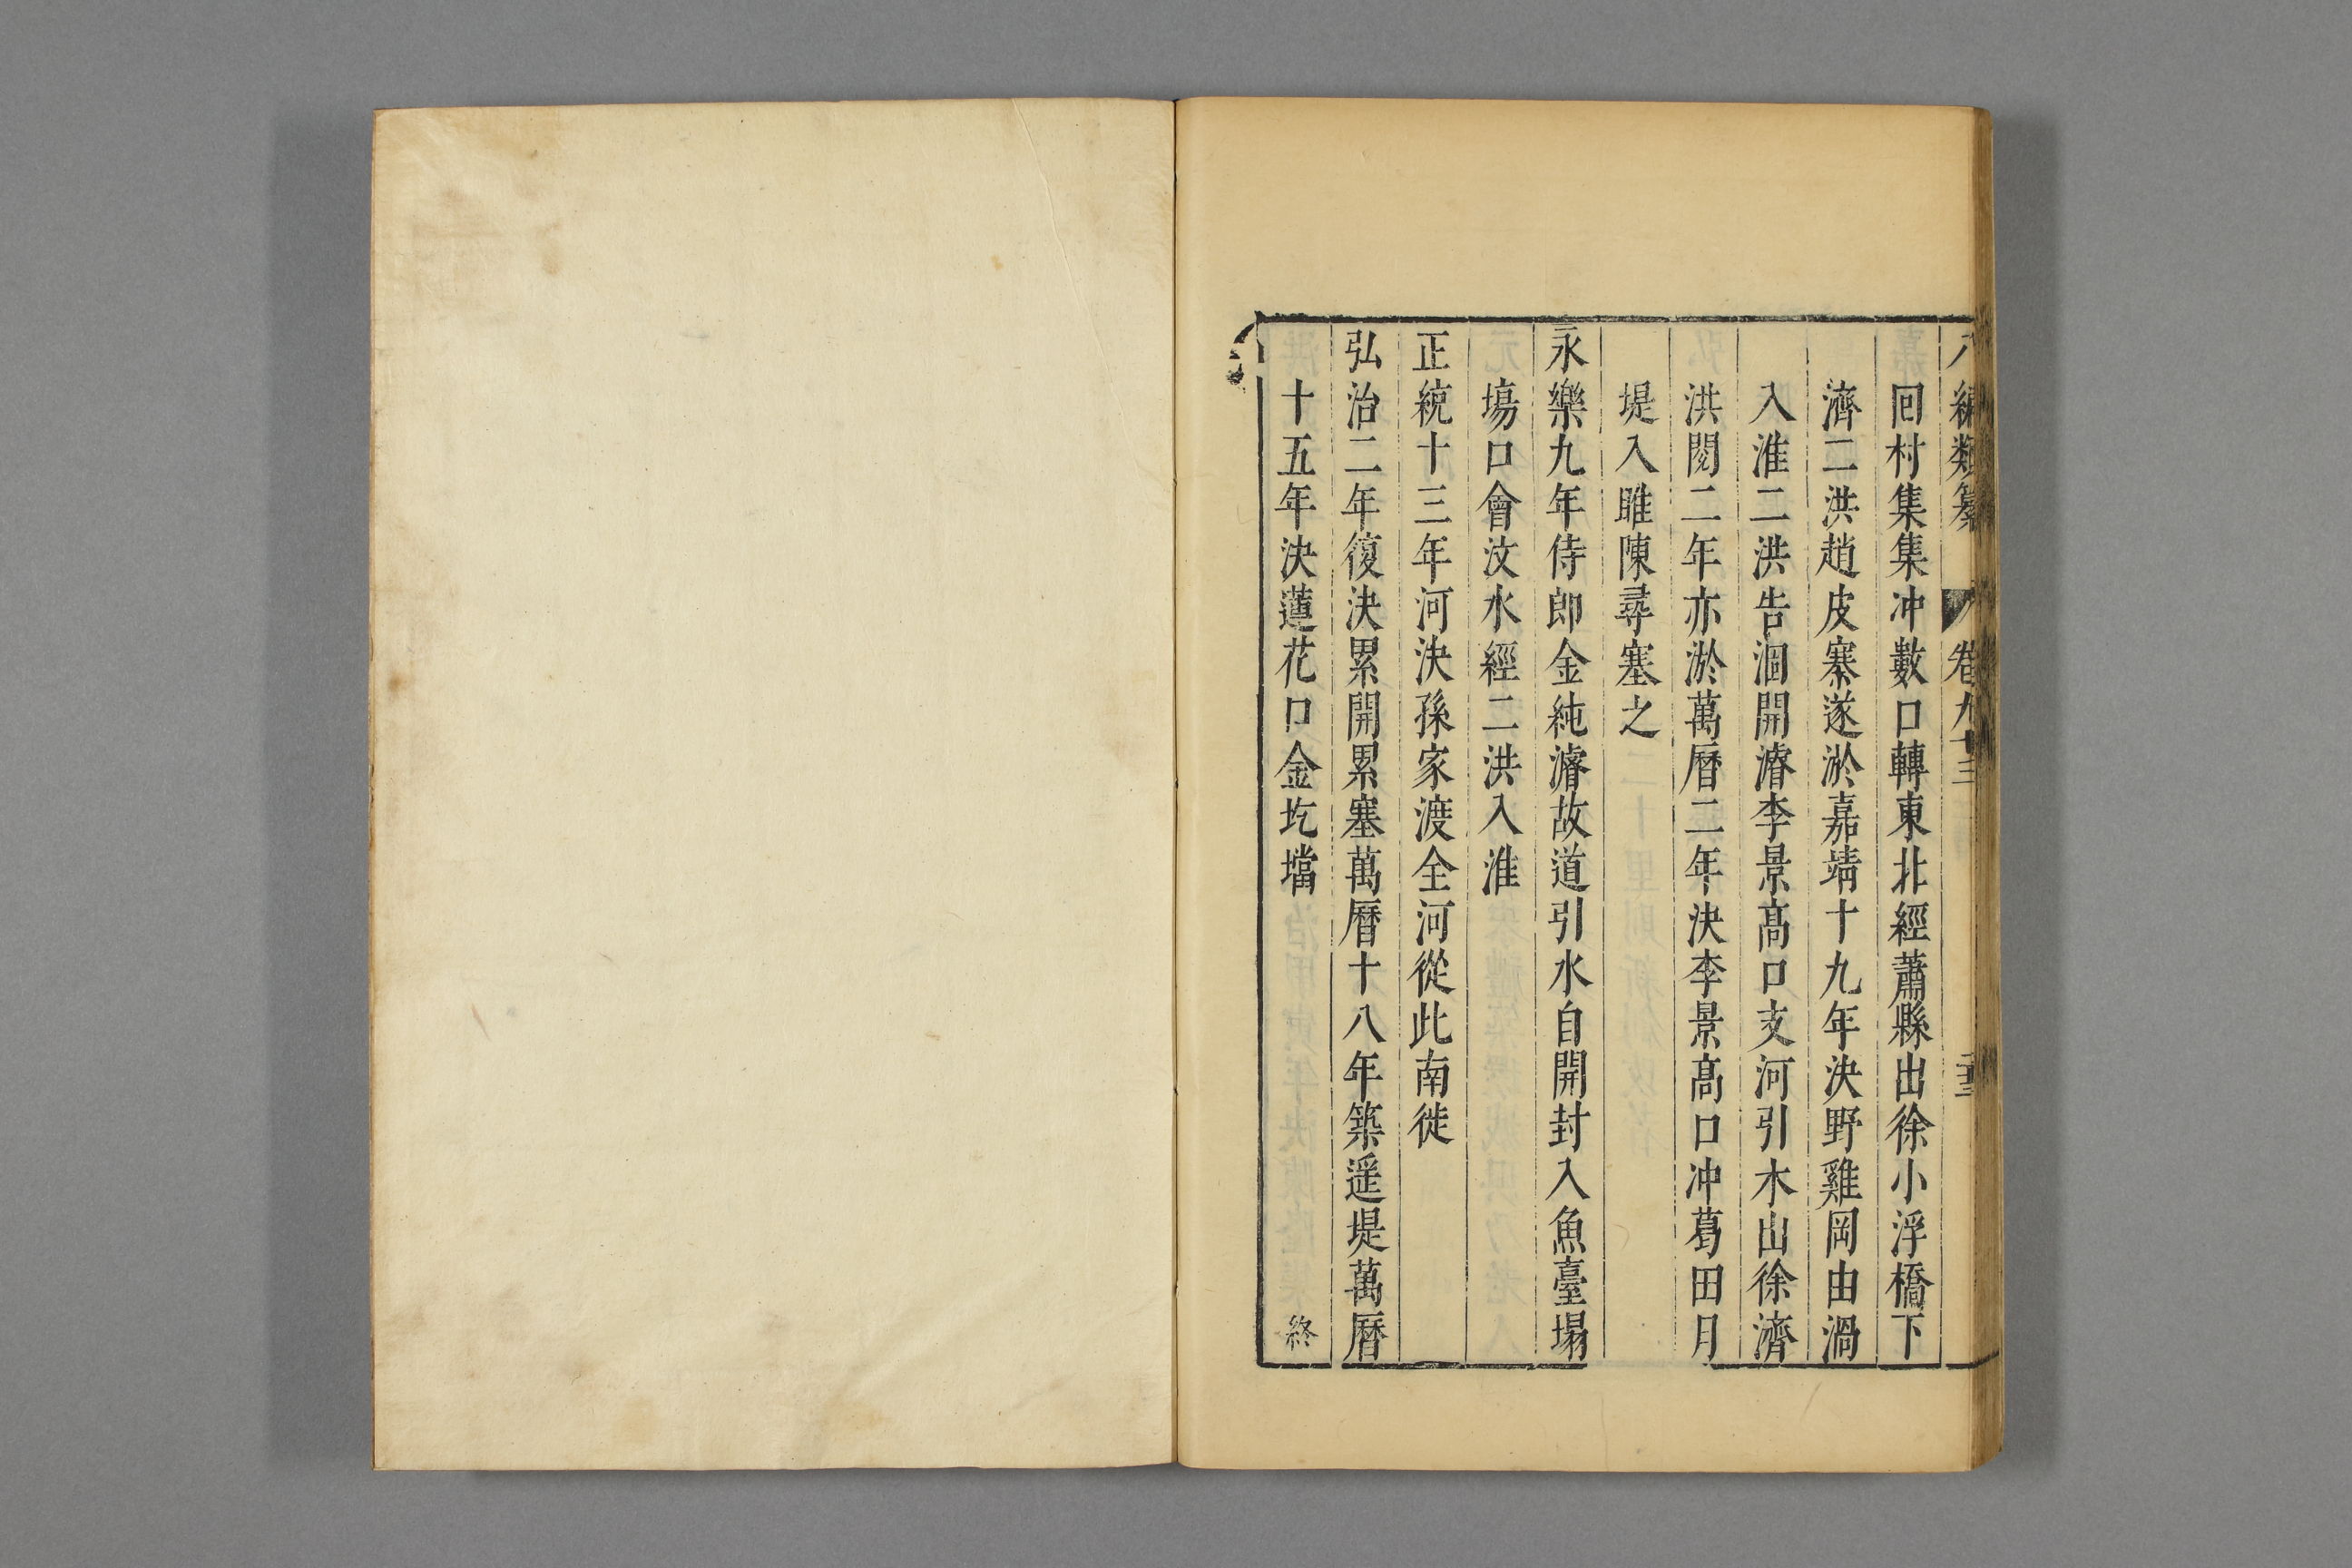 八編類纂 卷九十三 二十三
回村集集冲數口轉東北經蕭縣出徐小浮橋下
濟二洪趙皮寨遂淤嘉靖十九年決野雞岡由渦
入淮二洪告涸開濬李景高口支河引水出徐濟
洪閱二年亦淤萬曆二年決李景高口冲葛田月
堤入睢陳尋塞之
永樂九年侍郎金純濬故道引水自開封入魚臺塌
塲口會汶水經二洪入淮
正統十三年河決孫家渡全河從此南徙
弘治二年復決累開累塞萬曆十八年築遥堤萬曆
十五年決蓮花口金圪壋
終